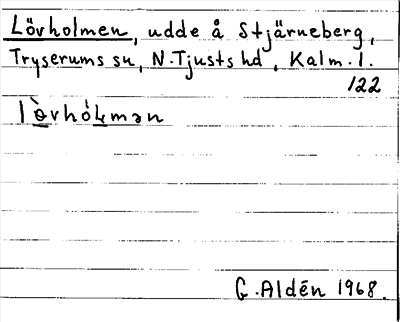 Lövholmen, udde å Stjärneberg,
Tryserums sn, N. Tjusts hd, Kalm. l.
122
lòvhòlmən
G. Aldén 1968.